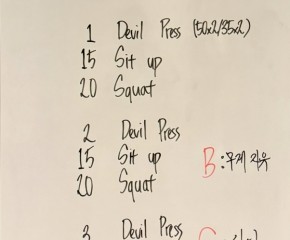 1 Devil Press (50x2/35x2)
15 Sit up
20 Squat
2 Devil Press
15 Sit up
20 Squat
B : 무게 자유
3 Devil Press